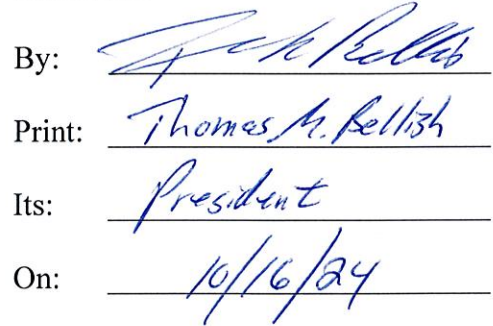 By:
Print: Thomas M. Bellish
Its: President
On: 10/16/24